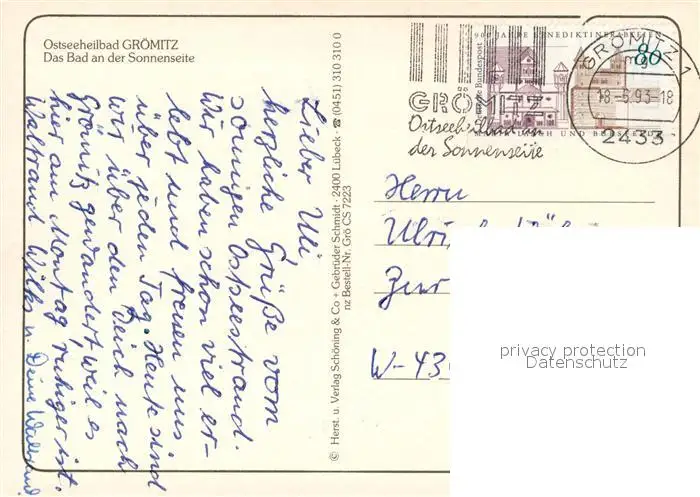 Ostseeheilbad GRÖMITZ
Das Bad an der Sonnenseite
Lieber Uli,
herzliche Grüße vom
sonnigen Ostseestrand.
Wir haben schon viel er-
lebt und freuen uns
über jeden Tag. Heute sind
wir über den Deich nach
Grömitz gewandert, weil es
hier am Montag ruhiger ist.
Waltraud Wilks u. Deine
© Herst. u. Verlag Schöning & Co + Gebrüder Schmidt · 2400 Lübeck · ☎ (0451) 310 310 0
nz Bestell-Nr. Grö CS 7223
900 JAHRE BENEDIKTINERABTEIEN
Deutsche Bundespost
80
MARIA LAACH UND BURSFELDE
GRÖMITZ
Ostseeheilbad an
der Sonnenseite
GRÖMITZ 1
mg
18.-6.93-18
2433
Herrn
W-43
privacy protection
Datenschutz